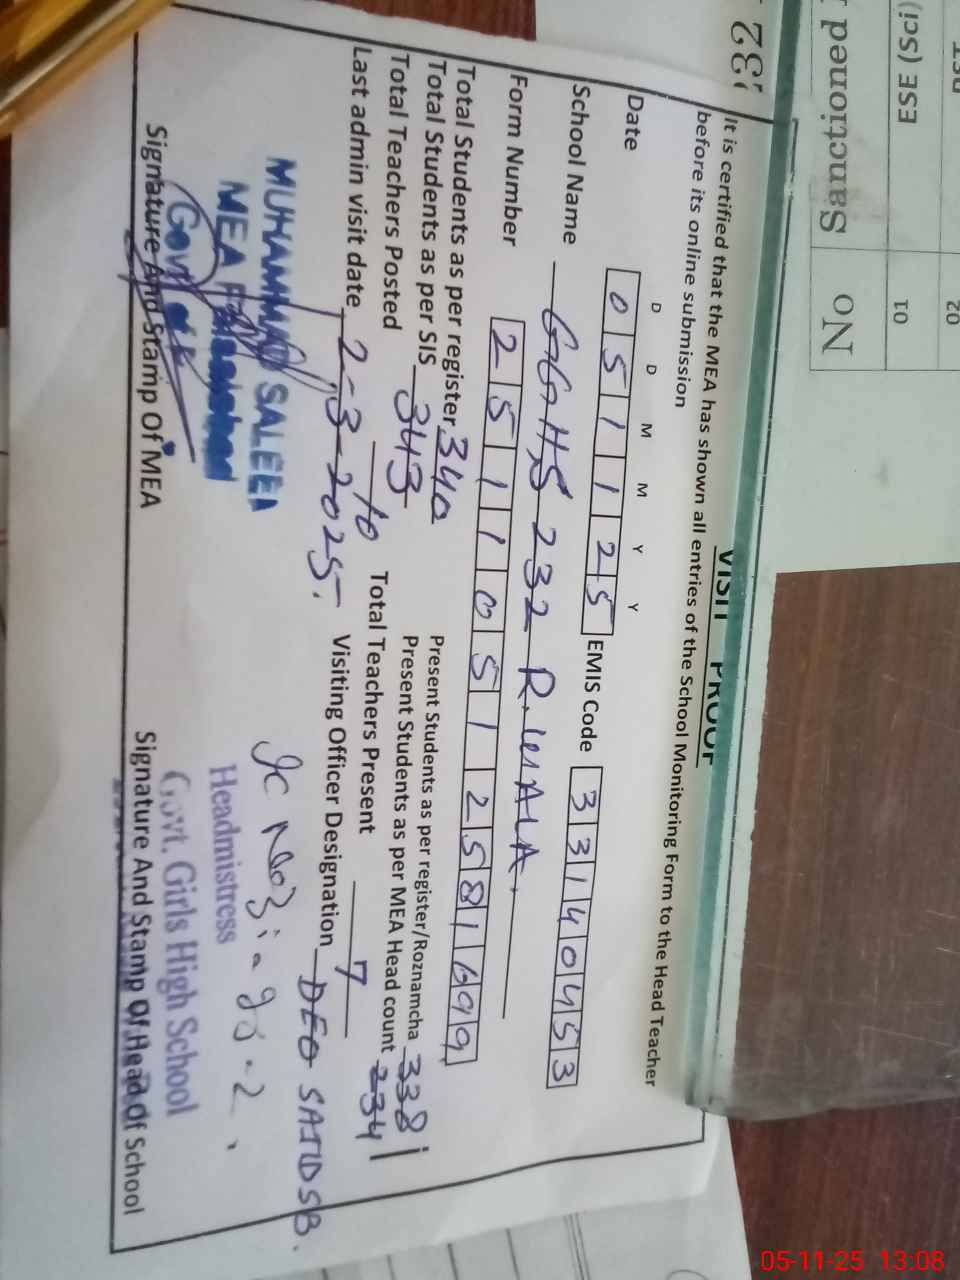 VISIT PROOF
It is certified that the MEA has shown all entries of the School Monitoring Form to the Head Teacher
before its online submission
D D M M Y Y
Date 0 5 1 1 2 5 EMIS Code 3 3 1 4 0 4 5 3
School Name GGHS 232 R.WALA.
Form Number 2 5 1 1 0 5 1 2 5 8 1 6 9 9
Total Students as per register 340 Present Students as per register/Roznamcha 338
Total Students as per SIS 343 Present Students as per MEA Head count 234
Total Teachers Posted 10 Total Teachers Present 7
Last admin visit date 2-3-2025. Visiting Officer Designation DEO SAJID SB.
MUHAMMAD SALEEM
MEA
Govt of
Headmistress
Govt. Girls High School
Signature And Stamp Of MEA Signature And Stamp Of Head Of School
Sanctioned
No
ESE (Sci)
01
02
05-11-25 13:08